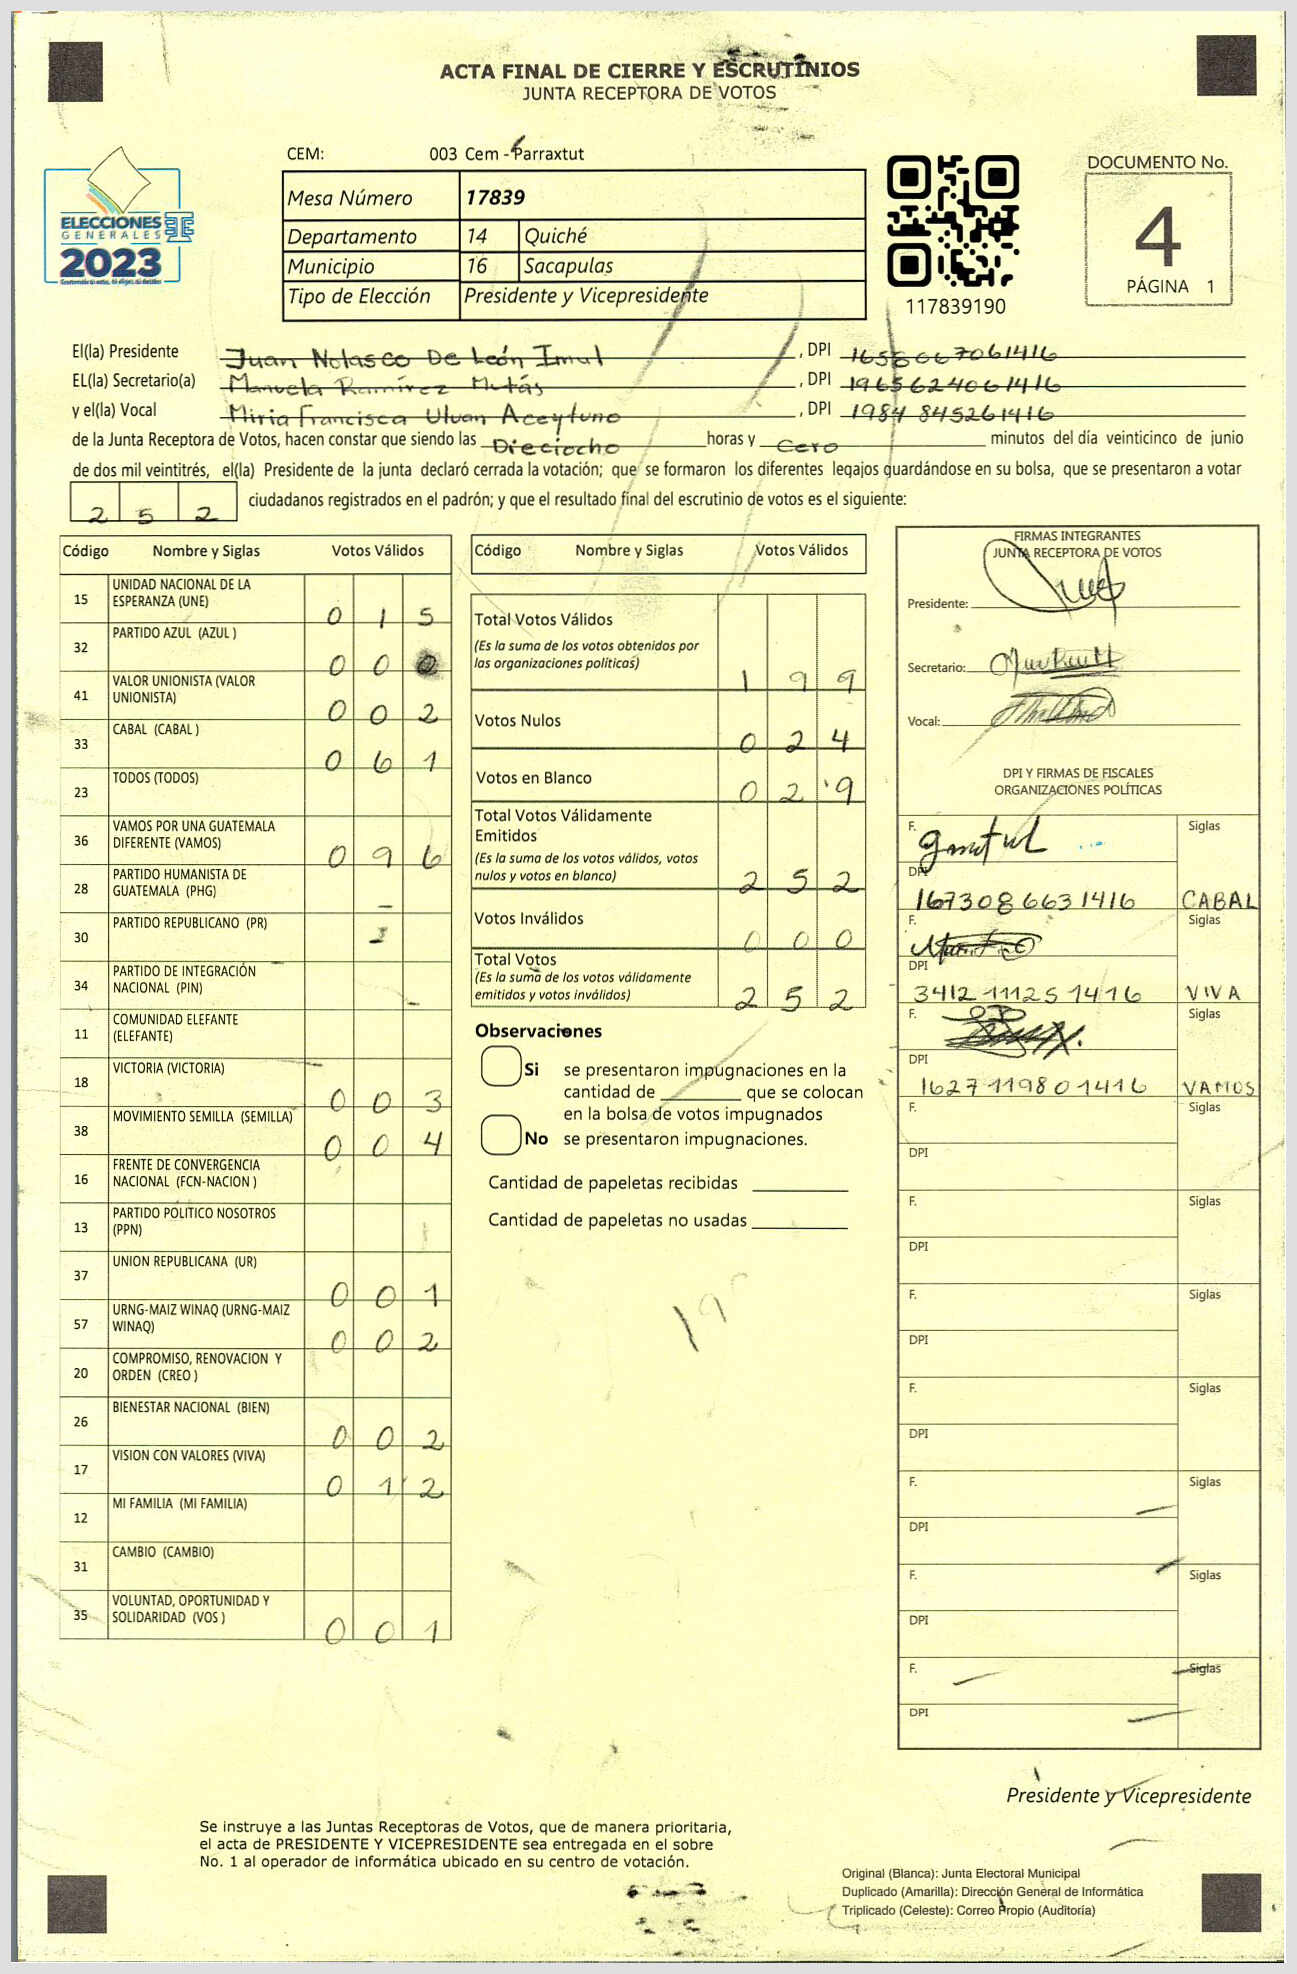 ACTA FINAL DE CIERRE Y ESCRUTINIOS
JUNTA RECEPTORA DE VOTOS
ELECCIONES
GENERALES
2023
CEM: 003 Cem - Parraxtut
Mesa Número 17839
Departamento 14 Quiché
Municipio 16 Sacapulas
Tipo de Elección Presidente y Vicepresidente
117839190
DOCUMENTO No.
4
PÁGINA 1
El(la) Presidente Juan Nolasco De León Imul, DPI 1658667061416
EL(la) Secretario(a) Manuela Ramírez Mutás, DPI 1965624061416
y el(la) Vocal Miria Francisca Uluan Aceytuno, DPI 1984 845261416
de la Junta Receptora de Votos, hacen constar que siendo las Dieciocho horas y Cero minutos del día veinticinco de junio
de dos mil veintitrés, el(la) Presidente de la junta declaró cerrada la votación; que se formaron los diferentes legajos guardándose en su bolsa, que se presentaron a votar
252 ciudadanos registrados en el padrón; y que el resultado final del escrutinio de votos es el siguiente:
Código Nombre y Siglas Votos Válidos
15 UNIDAD NACIONAL DE LA
ESPERANZA (UNE) 0 1 5
32 PARTIDO AZUL (AZUL ) 0 0 0
41 VALOR UNIONISTA (VALOR
UNIONISTA) 0 0 2
33 CABAL (CABAL ) 0 6 1
23 TODOS (TODOS)
36 VAMOS POR UNA GUATEMALA
DIFERENTE (VAMOS) 0 9 6
28 PARTIDO HUMANISTA DE
GUATEMALA (PHG)
30 PARTIDO REPUBLICANO (PR)
34 PARTIDO DE INTEGRACIÓN
NACIONAL (PIN)
11 COMUNIDAD ELEFANTE
(ELEFANTE)
18 VICTORIA (VICTORIA) 0 0 3
38 MOVIMIENTO SEMILLA (SEMILLA) 0 0 4
16 FRENTE DE CONVERGENCIA
NACIONAL (FCN-NACION )
13 PARTIDO POLITICO NOSOTROS
(PPN)
37 UNION REPUBLICANA (UR) 0 0 1
57 URNG-MAIZ WINAQ (URNG-MAIZ
WINAQ) 0 0 2
20 COMPROMISO, RENOVACION Y
ORDEN (CREO )
26 BIENESTAR NACIONAL (BIEN) 0 0 2
17 VISION CON VALORES (VIVA) 0 1 2
12 MI FAMILIA (MI FAMILIA)
31 CAMBIO (CAMBIO)
35 VOLUNTAD, OPORTUNIDAD Y
SOLIDARIDAD (VOS ) 0 0 1
Código Nombre y Siglas Votos Válidos
Total Votos Válidos
(Es la suma de los votos obtenidos por
las organizaciones políticas) 1 9 9
Votos Nulos 0 2 4
Votos en Blanco 0 2 9
Total Votos Válidamente
Emitidos
(Es la suma de los votos válidos, votos
nulos y votos en blanco) 2 5 2
Votos Inválidos 0 0 0
Total Votos
(Es la suma de los votos válidamente
emitidos y votos inválidos) 2 5 2
Observaciones
Si se presentaron impugnaciones en la
cantidad de ________ que se colocan
en la bolsa de votos impugnados
No se presentaron impugnaciones.
Cantidad de papeletas recibidas
Cantidad de papeletas no usadas
19
FIRMAS INTEGRANTES
JUNTA RECEPTORA DE VOTOS
Presidente:
Secretario:
Vocal:
DPI Y FIRMAS DE FISCALES
ORGANIZACIONES POLÍTICAS
F. Siglas
DPI 1673086631416 CABAL
F. Siglas
DPI 3412 11125 1416 VIVA
F. Siglas
DPI 1627119801416 VAMOS
F. Siglas
DPI
F. Siglas
DPI
F. Siglas
DPI
F. Siglas
DPI
F. Siglas
DPI
F. Siglas
DPI
F. Siglas
DPI
Presidente y Vicepresidente
Se instruye a las Juntas Receptoras de Votos, que de manera prioritaria,
el acta de PRESIDENTE Y VICEPRESIDENTE sea entregada en el sobre
No. 1 al operador de informática ubicado en su centro de votación.
Original (Blanca): Junta Electoral Municipal
Duplicado (Amarilla): Dirección General de Informática
Triplicado (Celeste): Correo Propio (Auditoría)